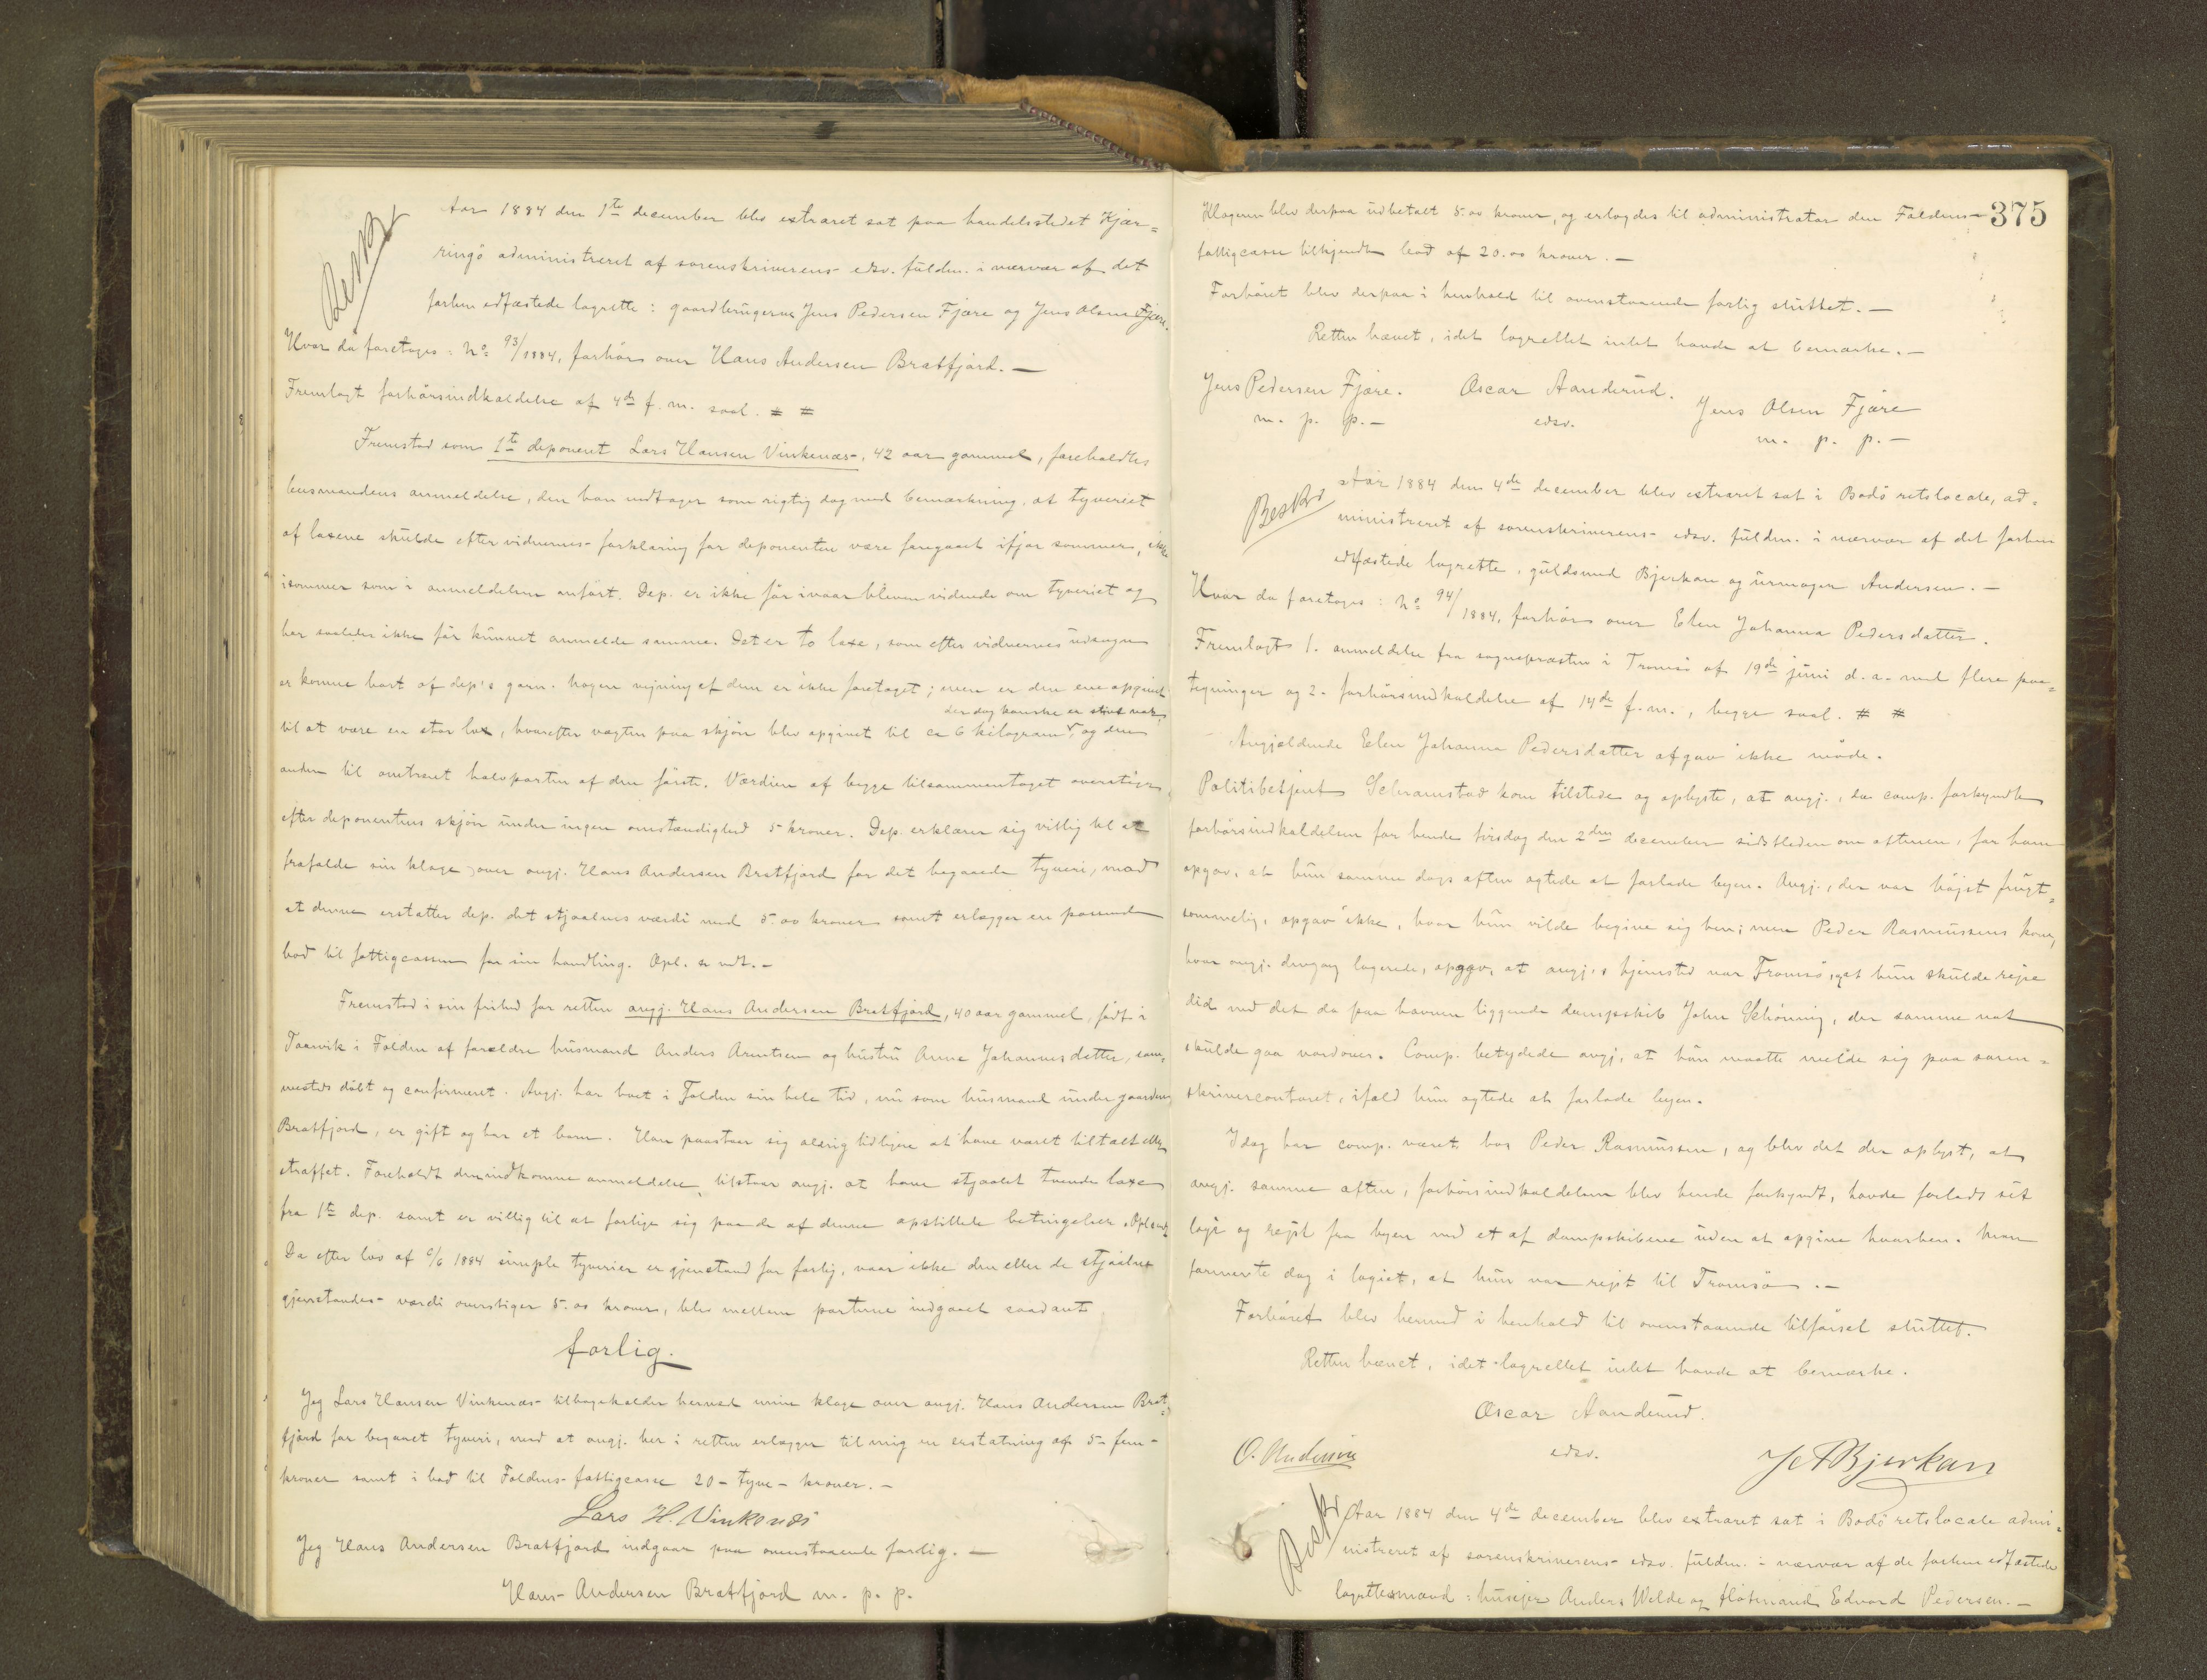 Besk.
Aar 1884 den 1te december blev extraret sat paa handelsstedet Kjær=
ringö administreret af sorenskriverens edsv. fuldm. i nærvær af det
forhen edfæstede lagrette: gaardbrugerne Jens Pedersen Fjære og Jens Olsen Fjære.
Hvor da foretoges: No 93/1884, forhör over Hans Andersen Bratfjord. —
Fremlagt forhörsindkaldelse af 4de f. m. saal. # #
Fremstod som 1te deponent Lars Hansen Vinkenæs, 42 aar gammel, foreholdtes
lensmandens anmeldelse, den han vedtager som rigtig dog med bemærkning, at tyveriet
af laxene skulde efter vidnernes forklaring for deponenten være foregaaet ifjor sommer, ikke
isommer som i anmeldelsen anfört. Dep. er ikke för ivaar bleven vidende om tyveriet og
har saaledes ikke för kunnet anmelde samme. Det er to laxe, som efter vidnernes udsagn
er komne bort af dep's garn. Nogen vejning af dem er ikke foretaget; men er den ene opgivet
der dog kanske er stivt nok,
til at være en stor lax, hvorefter vægten paa skjön blev opgivet til ca 6 kilogram, og den
anden til omtrent halvparten af den förste. Værdien af begge tilsammentaget overstiger
efter deponentens skjön under ingen omstændighed 5 kroner. Dep. erklærer sig villig til at
frafalde sin klage over angj. Hans Andersen Bratfjord for det begaaede tyveri, mod
at denne erstatter dep. det stjaalnes værdi med 5.00 kroner samt erlægger en passende
bod til fattigcassen for sin handling. Opl. & vedt. -
Fremstod i sin frihed for retten angj. Hans Andersen Bratfjord, 40 aar gammel, födt i
Taarvik i Folden af forældre husmand Anders Arentsen og hustru Anne Johannesdatter, sam-
mesteds döbt og confirmeret. Angj. har boet i Folden sin hele tid, nu som husmand under gaarden
Bratfjord, er gift og har et barn. Han paastaar sig aldrig tidligere at have været tiltalt eller
straffet. Foreholdt den indkomne anmeldelse, tilstaar angj. at have stjaalet tvende laxe
fra 1te dep. samt er villig til at forlige sig paa de af denne opstillede betingelser. Opl. & vedt.
Da efter lov af 6/6 1884 simple tyverier er gjenstand for forlig, naar ikke den eller de stjaalne
gjenstandes værdi overstiger 5.00 kroner, blev mellem parterne indgaaet saadant
forlig.
Jeg Lars Hansen Vinkenæs tilbagekalder herved min klage over angj. Hans Andersen Brat-
fjord for begaaet tyveri, mod at angj. her i retten erlægger til mig en erstatning af 5 - fem -
kroner samt i bod til Foldens fattigcasse 20 - tyve - kroner. -
Lars H. Vinkenæs
Jeg Hans Andersen Bratfjord indgaar paa ovenstaaende forlig. —
Hans Andersen Bratfjord m. p. p.
375
Klageren blev derpaa udbetalt 5.00 kroner, og erlagdes til administrator den Foldens
fattigcasse tilkjendte bod af 20.00 kroner. —
Forhöret blev derpaa i henhold til ovenstaaende forlig sluttet. —
Retten hævet, idet lagrettet intet havde at bemærke. —
Jens Pedersen Fjære. Oscar Aanderud. Jens Olsen Fjære
m. p. p. - edsv. m. p. p. —
Besk.
Aar 1884 den 4de december blev extraret sat i Bodö retslocale, ad=
ministreret af sorenskriverens edsv. fuldm. i nærvær af det forhen
edfæstede lagrette, guldsmed Bjerkan og urmager Andersen. —
Hvor da foretoges: No 94/1884, forhör over Elen Johanna Pedersdatter.
Fremlagdes 1. anmeldelse fra sognepræsten i Tromsö af 19de juni d. a. med flere paa=
tegninger og 2. forhörsindkaldelse af 14de f. m., begge saal. # #
Angjældende Elen Johanna Pedersdatter afgav ikke möde.
Politibetjent Schramstad kom tilstede og oplyste, at angj., da comp. forkyndte
forhörsindkaldelsen for hende tirsdag den 2den december sidstleden om aftenen, for ham
opgav, at hun samme dags aften agtede at forlade byen. Angj., der var höjst frugt=
sommelig, opgav ikke, hvor hun vilde begive sig hen; men Peder Rasmussens kone,
hvor angj. dengang logerede, opgav, at angj.s hjemsted var Tromsö, at hun skulde rejse
did med det da paa havnen liggende dampskib John Schönning, der samme nat
skulde gaa nordover. Comp. betydede angj. at hun maatte melde sig paa soren=
skrivercontoret, ifald hun agtede at forlade byen.
Idag har comp. været hos Peder Rasmussen, og blev det der oplyst, at
angj. samme aften, forhörsindkaldelsen blev hende forkyndt, havde forladt sit
logi og rejst fra byen med et af dampskibene uden at opgive hvorhen. Man
formente dog i logiet, at hun var rejst til Tromsö. —
Forhöret blev herved i henhold til ovenstaaende tilförsel sluttet.
Retten hævet, idet lagrettet intet havde at bemærke.
Oscar Aanderud.
O. Andersen edsv. Bjerkan
Besk.
Aar 1884 den 4de december blev extraret sat i Bodö retslocale admi-
nistreret af sorenskriverens edsv. fuldm. i nærvær af de forhen edfæstede
lagrettesmænd: husejer Anders Welde og flötmand Edvard Pedersen. —